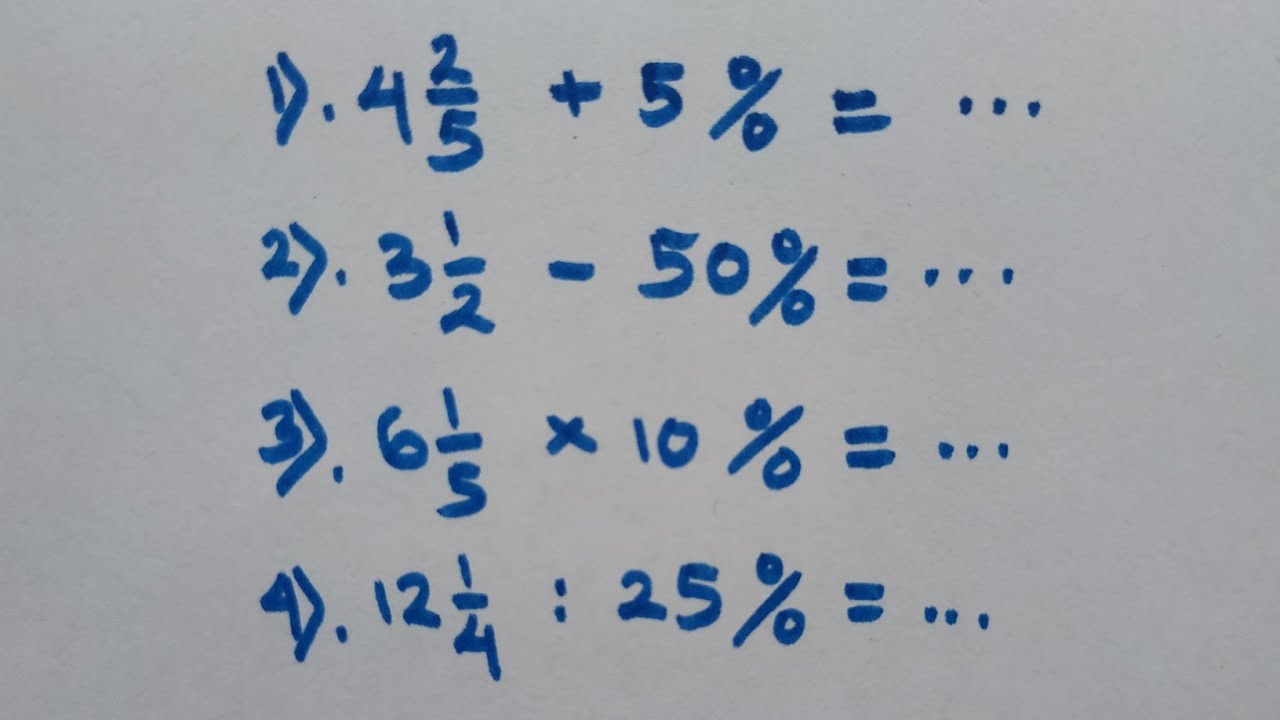 1). 4 2/5 + 5 % = ...
2). 3 1/2 - 50 % = ...
3). 6 1/5 × 10 % = ...
4). 12 1/4 : 25 % = ...